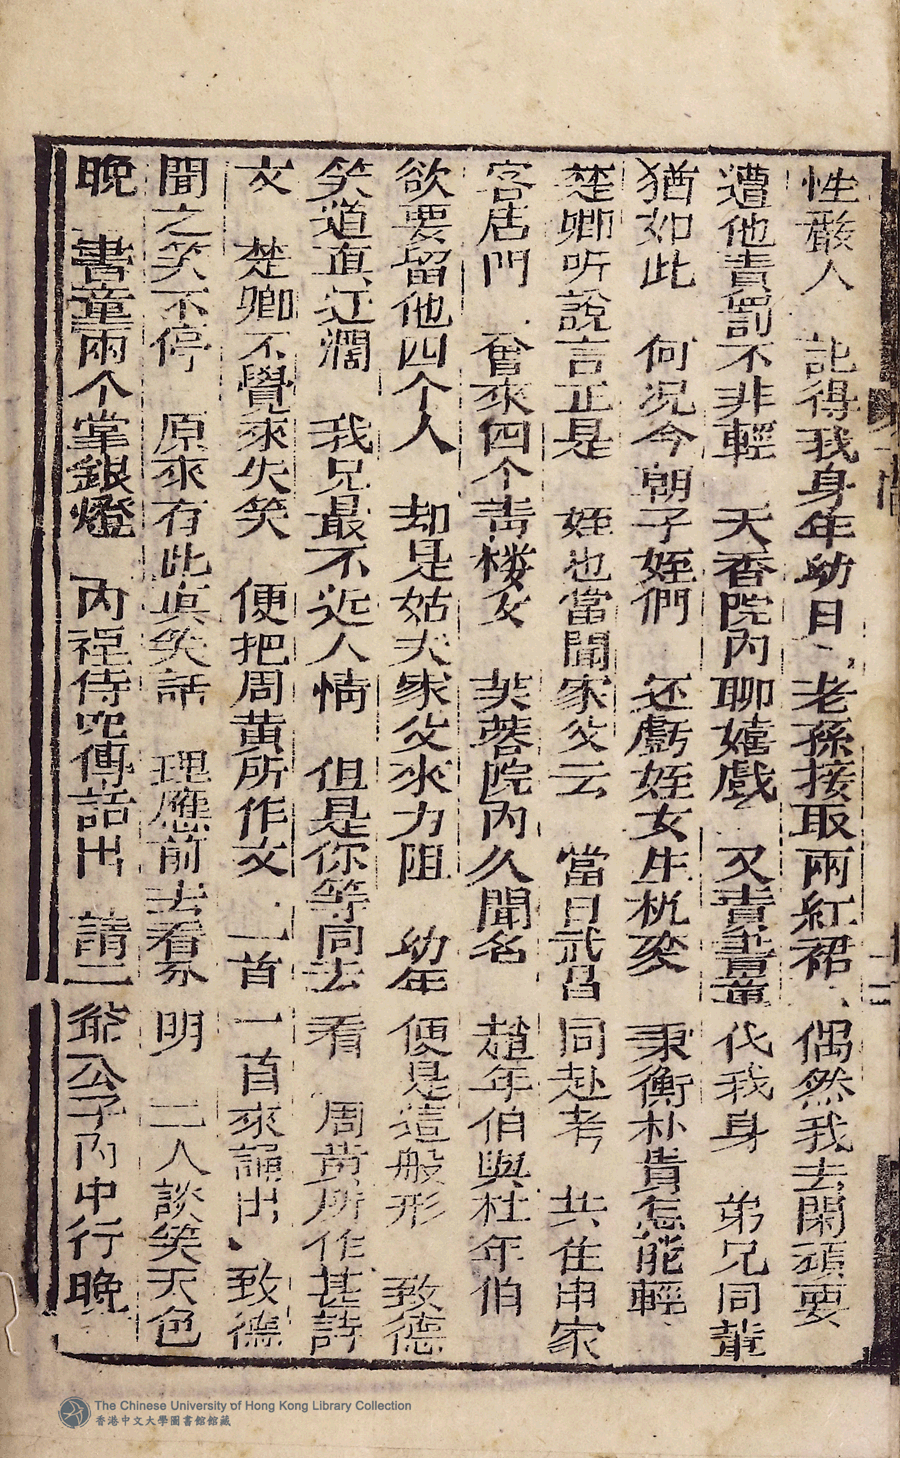 性嚴人　記得我身年幼日　老孫接取兩紅裙　偶然我去閑頑耍
遭他責罰不非輕　天香院內聊嬉戲　又責書童伐我身　弟兄同輩
猶如此　何况今朝子姪們　还虧姪女生机変　秉衡朴責怎能輕
楚卿听說言正是　姪也當聞家父云　當日武昌同赴考　共住申家
客店門　曾來四个青楼女　芙蓉院內久聞名　趙年伯與杜年伯
欲要留他四个人　却是姑夫家父來力阻　幼年便是這般形　致德
笑道真迂濶　我兄最不近人情　但是你等同去看　周黄所作甚詩
文　楚卿不覺來失笑　便把周黄所作文　一首一首來誦出　致德
聞之笑不停　原來有此真笑話　理應前去看分明　二人談笑天色
晚　書童兩个掌銀燈　內裡侍児傳話出　請二爺公子內中行　晚
The Chinese University of Hong Kong Library Collection
香港中文大學圖書館館藏